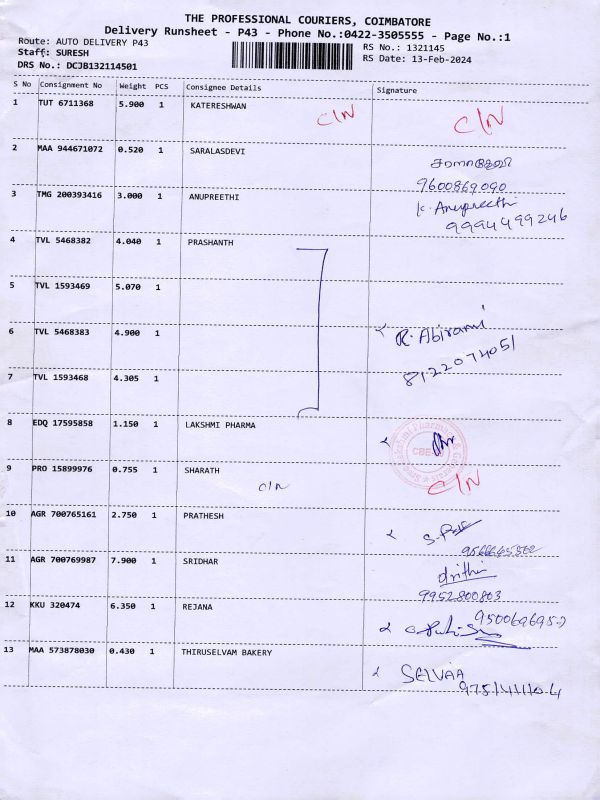 THE PROFESSIONAL COURIERS, COIMBATORE
Delivery Runsheet - P43 - Phone No.:0422-3505555 - Page No.:1
Route: AUTO DELIVERY P43 RS No.: 1321145
Staff: SURESH RS Date: 13-Feb-2024
DRS No.: DCJB132114501
S No Consignment No Weight PCS Consignee Details Signature
1 TUT 6711368 5.900 1 KATERESHWAN C/N C/N
2 MAA 944671072 0.520 1 SARALASDEVI
9600869090
3 TMG 200393416 3.000 1 ANUPREETHI K. Anupreethi
9994499246
4 TVL 5468382 4.040 1 PRASHANTH
5 TVL 1593469 5.070 1
6 TVL 5468383 4.900 1 R. Abirami
8122074051
7 TVL 1593468 4.305 1
8 EDQ 17595858 1.150 1 LAKSHMI PHARMA
9 PRO 15899976 0.755 1 SHARATH C/N C/N
10 AGR 700765161 2.750 1 PRATHESH
11 AGR 700769987 7.900 1 SRIDHAR
9952800803
12 KKU 320474 6.350 1 REJANA
13 MAA 573878030 0.430 1 THIRUSELVAM BAKERY SELVAA